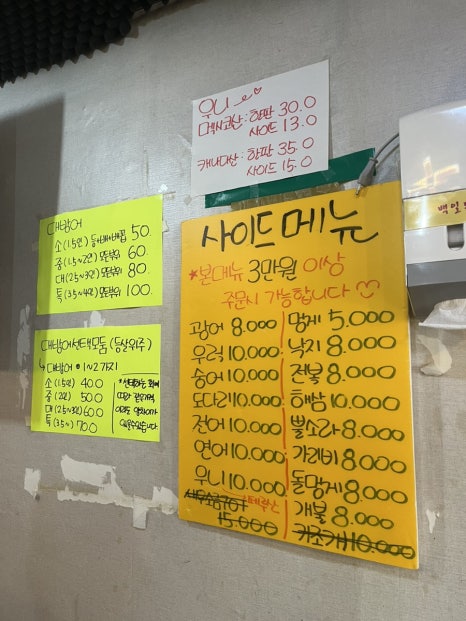 우니
멕시코산: 한판 30.0
사이드 13.0
캐나다산: 한판 35.0
사이드 15.0
대방어
소 (1.5인) 등살배꼽살 50.
중 (1.5~2인) 모든부위 60.
대 (2.5~3인) 모든부위 80.
특 (3.5~4인) 모든부위 100.
대방어선택모둠 (등살위주)
↳ 대방어 + 1~2가지
소 (1.5인) 40.0
중 (2인) 50.0
대 (2.5~3인) 60.0
특 (3.5~) 70.0
사이드 메뉴
*본메뉴 3만원 이상
주문시 가능합니다 ♡
광어 8.000
우럭 10.000
숭어 10.000
도다리 10.000
전어 10.000
연어 10.000
우니 10.000
새우소금구이
15.000
멍게 5.000
낙지 8.000
전복 8.000
해삼 10.000
뿔소라 8.000
가리비 8.000
돌멍게 8.000
개불 8.000
키조개 10.000